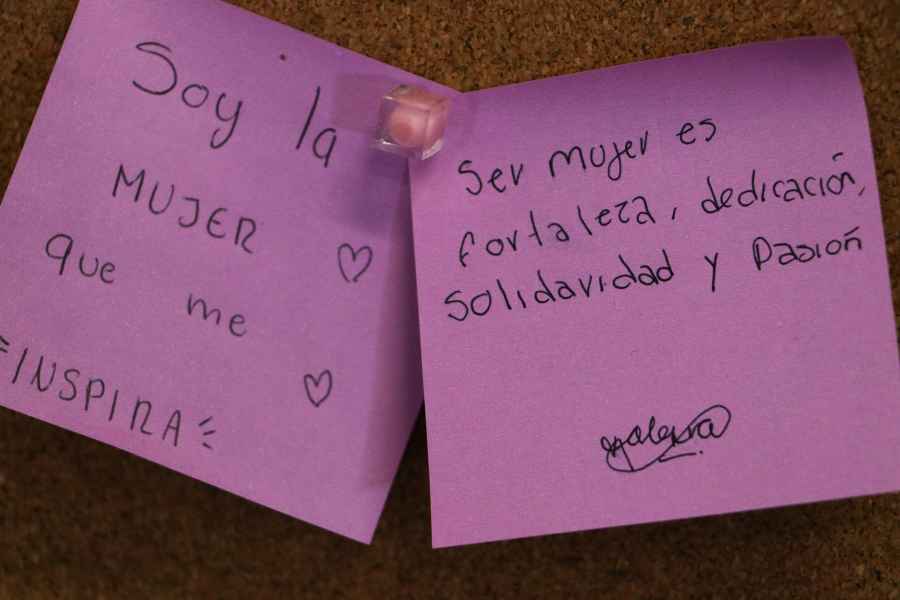 Soy la
MUJER
que me
INSPIRA
Ser mujer es
fortaleza, dedicación,
solidaridad y Pasión